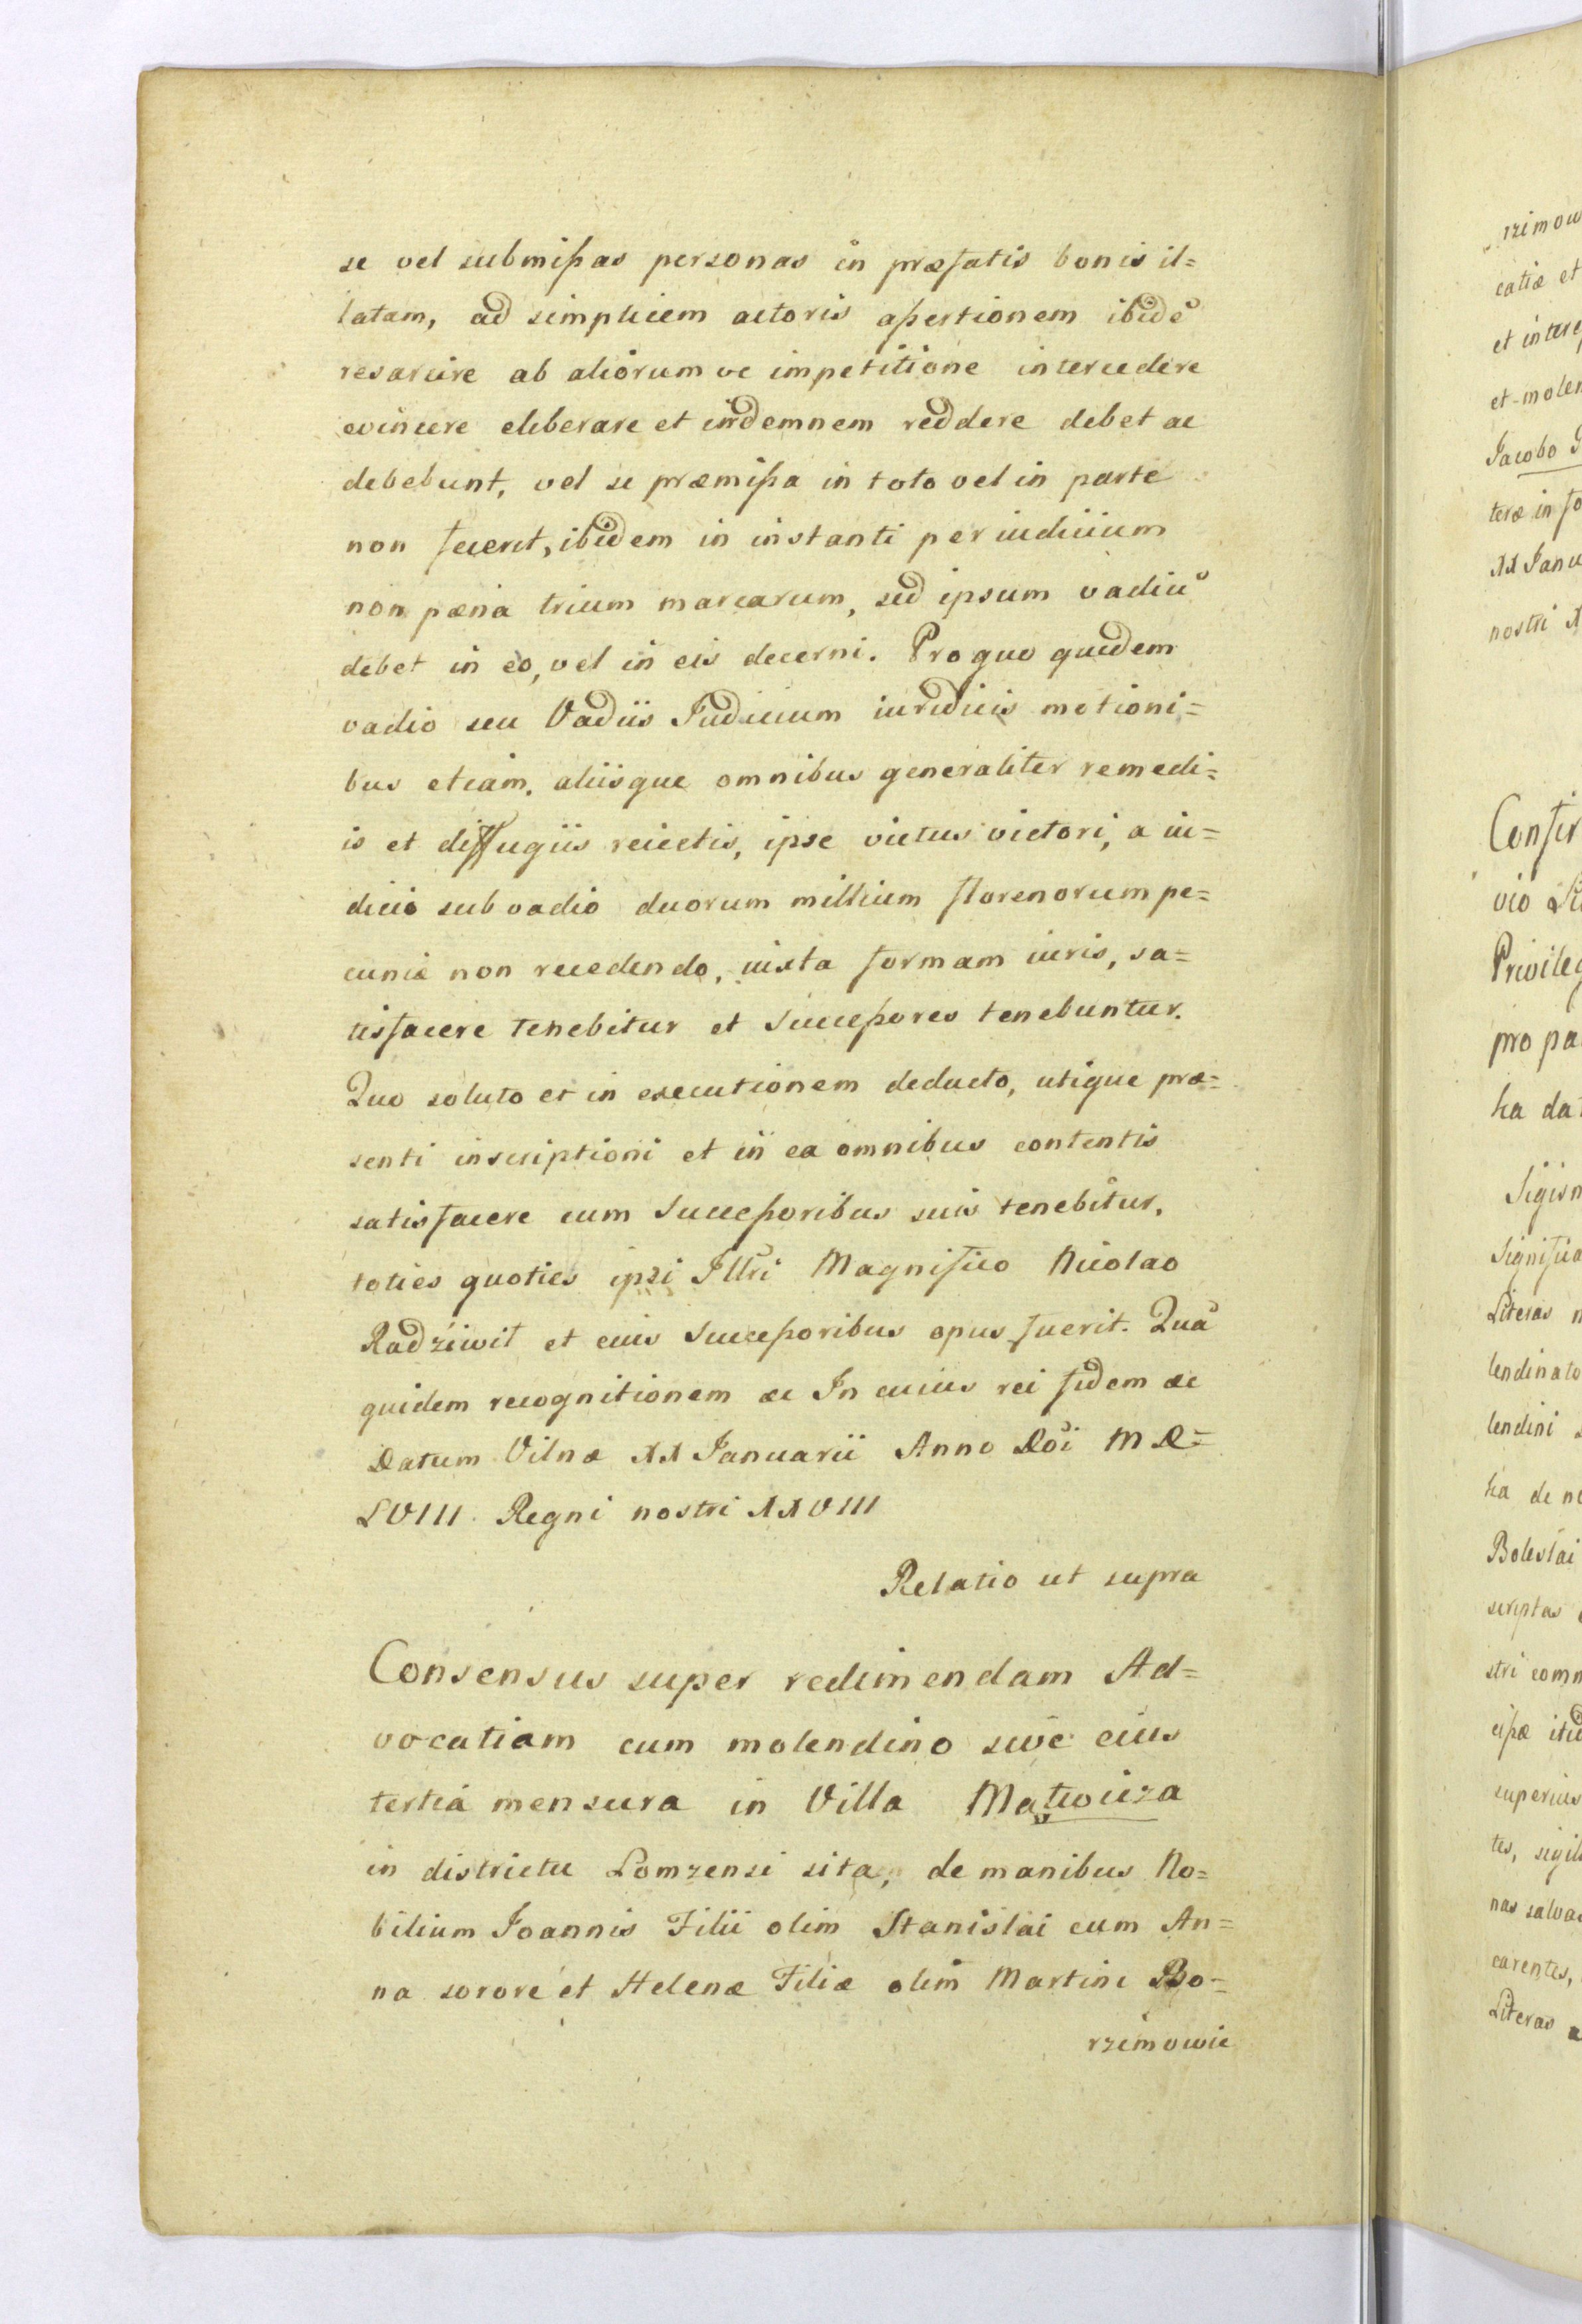 se vel submißas personas in præfatis bonis il=
latam, ad simplicem actoris aßertionem ibidē
resarcire ab aliorum ve impetitione intercedere
evincere eliberare et indemnem reddere debet ac
debebunt, vel se præmißa in toto vel in parte
non fecerit, ibidem in instanti per iudicium
non pæna trium marcarum, sed ipsum vadiū
debet in eo, vel in eis decerni. Pro quo quidem
vadio seu Vadiis Iudicium iuridicis motioni=
bus etiam. aliisque omnibus generaliter remedi=
is et diffugiis reiectis, ipse victus victori, a iu=
dicio sub vadio duorum millium florenorum pe=
cuniæ non recedendo, iuxta formam iuris, sa=
tisfacere tenebitur et Succeßores tenebuntur.
Quo soluto et in executionem deducto, utique præ=
senti inscriptioni et in ea omnibus contentis
satisfacere cum Succeßoribus suis tenebitur,
toties quoties ipsi Illri Magnifico Nicolao
Radziwił et eius Succeßoribus opus fuerit. Quā
quidem recognitionem æc In cuius rei fidem æc
Datum Vilnæ XX Januarii Anno Doi MD=
LVIII. Regni nostri XXVIII
Relatio ut supra
Consensus super redimendam Ad=
vocatiam cum molendino sive eius
tertia mensura in Villa Matwicza
in districtu Lomzensi sita, de manibus No=
bilium Joannis Filii olim Stanislai cum An=
na sorore et Helenæ Filiæ olim Martini Bo=
rzimowie
rzimow
catiæ et
et inter
et molen
Jacobo
teræ in fo
XX Janu
nostri X
Confir
vio
Privileg
pro pa
ka dat
Sigism
Significa
Literas n
lendinato
lendini
ka de no
Boleslai
scriptas
stri comm
cißæ itid
superius
tes, sigil
nas salvas
carentes,
Literas